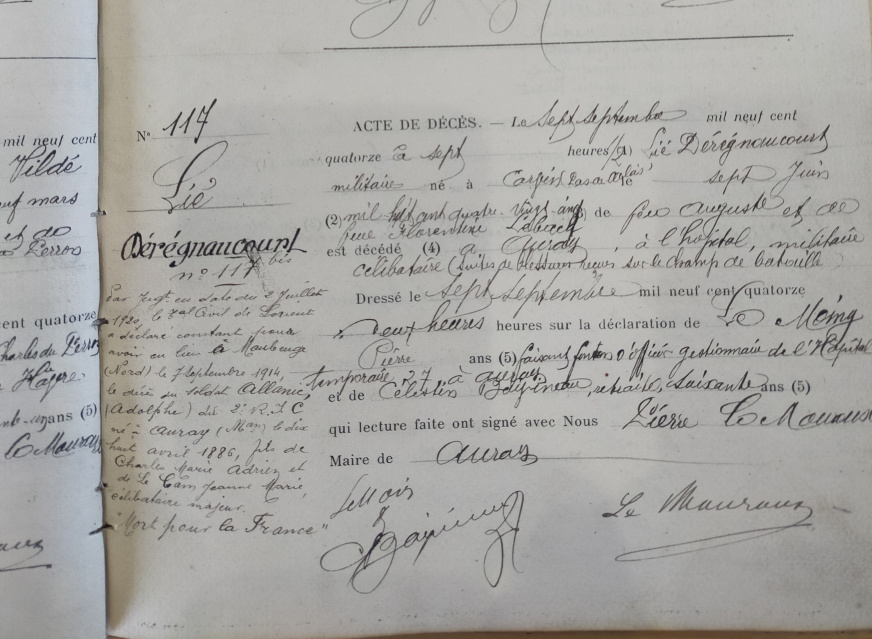 mil neuf cent
Vildé
mars
et de
Perron
cent quatorze
Charles du Perron
ans (5)
N° 117
Lié
Dérégnaucourt
n° 117 bis
Par Jugt en date du 2 Juillet
1920, le Tal Civil de Lorient
a déclaré constant pour
avoir eu lieu à Maubeuge
(Nord) le 7 septembre 1914,
le décès du soldat Allanic,
(Adolphe) du 2e R.I.C
né à Auray (Man) le dix
huit avril 1886, fils de
Charles Marie Adrien et
de Le Cam Jeanne Marie,
célibataire majeur.
"Mort pour la France"
ACTE DE DÉCÈS. — Le sept septembre mil neuf cent
quatorze à sept heures (1) Lié Dérégnaucourt
militaire né à Carvin Pas de Calais le sept Juin
(2) mil huit cent quatre-vingt (3) de feu Auguste et de
feue Florentine
est décédé (4) à Auray, à l'hôpital, militaire
célibataire (suites de blessures reçues sur le champ de bataille)
Dressé le sept septembre mil neuf cent quatorze
deux heures heures sur la déclaration de Le Moing
Pierre ans (5) faisant fonction d'officier gestionnaire de l'Hôpital
temporaire 27 à Auray
et de Célestin retraité, soixante ans (5)
qui lecture faite ont signé avec Nous Pierre Le Mouroux
Maire de Auray
Le Mouroux